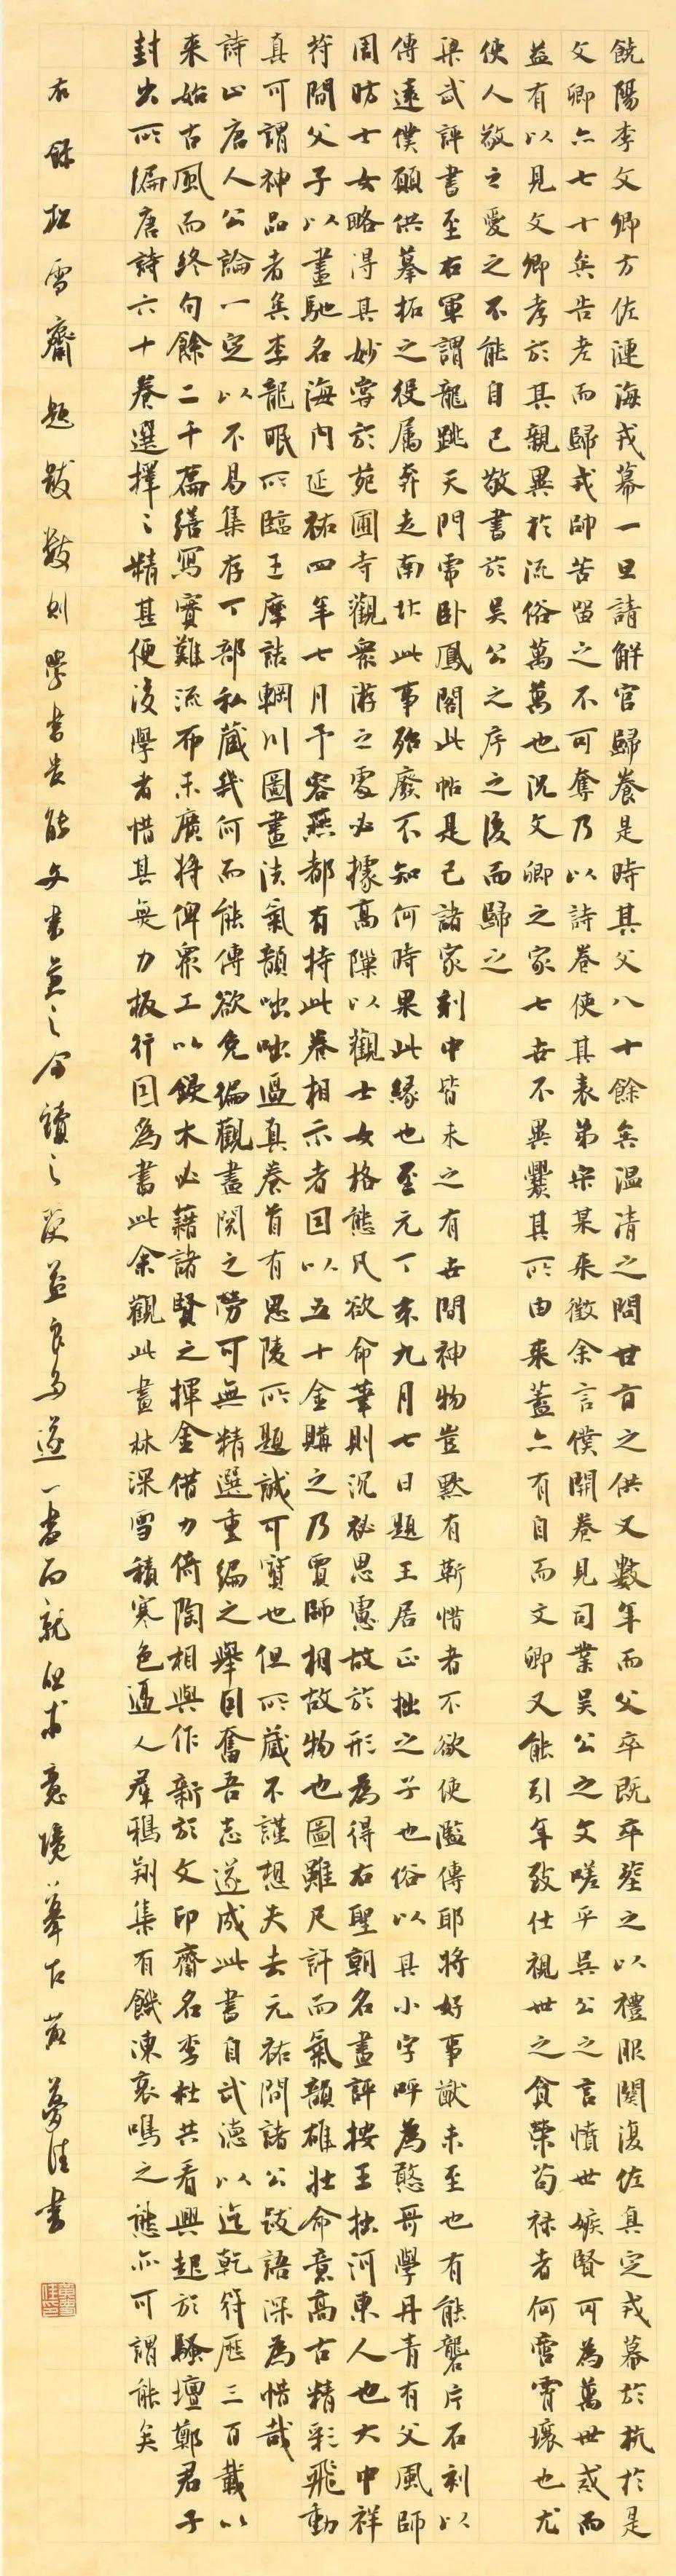 饒陽李文卿方佐漣海戎幕一旦請解官歸養是時其父八十餘矣溫清之問甘旨之供又數年而父卒既卒葬之以禮服闋復佐真定戎幕於杭於是
文卿亦七十矣告老而歸戎帥苦留之不可奪乃以詩卷使其表弟宋某來徵余言僕開卷見司業吳公之文嗟乎吳公之言憤世嫉賢可為萬世戒而
益有以見文卿孝於其親異於流俗萬萬也況文卿之家七世不異爨其所由來蓋亦有自而文卿又能引年致仕視世之貪榮苟祿者何啻霄壤也尤
使人敬之愛之不能自已敬書於吳公之序之後而歸之
梁武評書至右軍謂龍跳天門虎臥鳳閣此帖是已諸家刻中皆未之有世間神物豈默有靳惜者不欲使濫傳耶將好事猷未至也有能礱片石刻以
傳遠僕願供摹拓之役屬奔走南北此事殆廢不知何時果此緣也至元丁未九月七日題王居正拙之子也俗以其小字呼為憨哥學丹青有父風師
周昉士女略得其妙嘗於苑圃寺觀眾游之處必據高隙以觀士女格態凡欲命筆則沉祕思慮故於形為得右聖朝名畫評按王拙河東人也大中祥
符間父子以畫馳名海內延祐四年七月予容燕都有持此卷相示者因以五十金購之乃賈師相故物也圖雖尺許而氣韻雄壯命意高古精彩飛動
真可謂神品者矣李龍眠所臨王摩詰輞川圖畫法氣韻咄咄逼真卷首有思陵所題誠可寶也但所藏不謹想夫去元祐間諸公跋語深為惜哉
詩止唐人公論一定以不易集存丁部私藏幾何而能傳欲免編觀盡閱之勞可無精選重編之舉因奮吾志遂成此書自武德以迄乾符歷三百載以
來始古風而終句餘二千篇繕寫實難流布未廣將俾眾工以鋟木必藉諸賢之揮金借力倚陶相與作新於文印齋名李杜共看興起於騷壇鄭君子
封出所編唐詩六十卷選擇之精甚便後學者惜其無力板行因為書此余觀此畫林深雪積寒色逼人群鴉翔集有饑凍哀鳴之態亦可謂能矣
右錄松雪齋題跋數則學書貴能文書兼之余讀之受益良多遂一書而就但求意境摹古 夢佳書